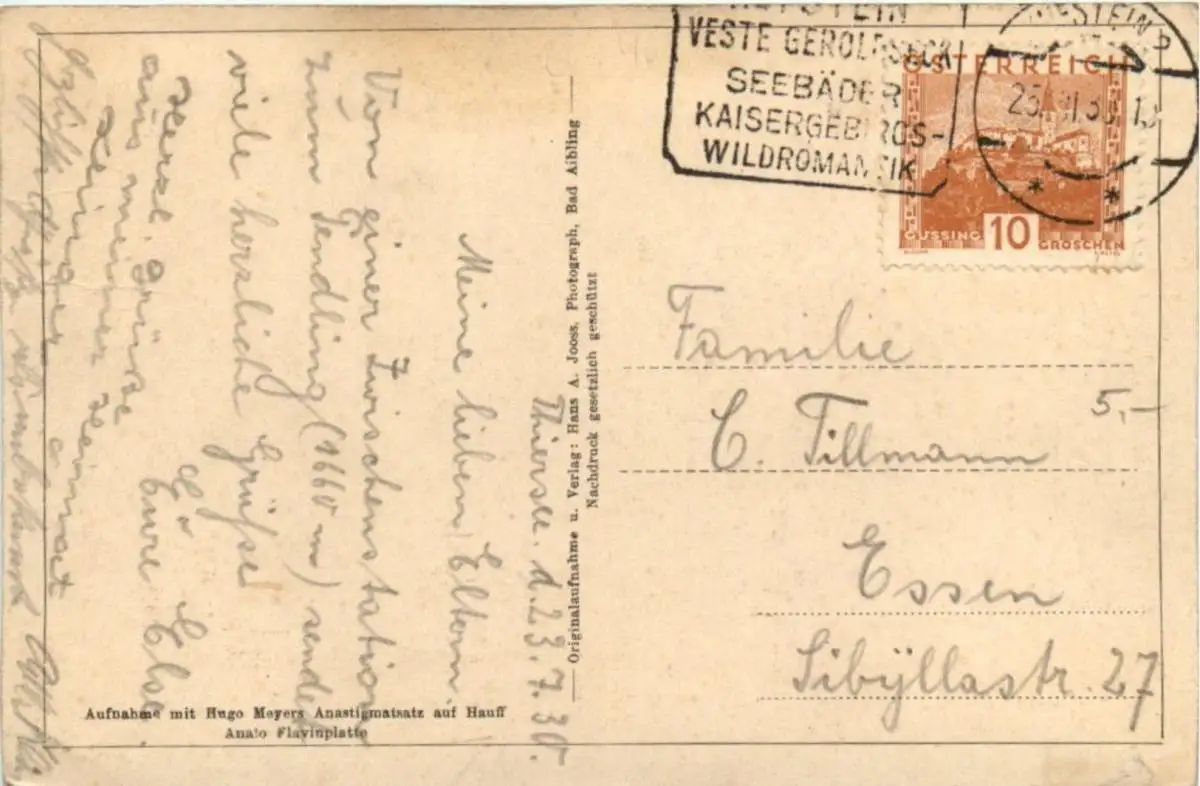 KUFSTEIN
VESTE GEROLDSECK
SEEBÄDER
KAISERGEBIRGS-
WILDROMANTIK
KUFSTEIN
ÖSTERREICH
GÜSSING 10 GROSCHEN
Thiersee. d. 23.7.30.
Meine lieben Eltern.
Von einer Zwischenstation
zum Pendling (1660 m) sendet
viele herzliche Grüsse
Eure Else
Herzl. Grüße
aus meiner
Heimat
Originalaufnahme u. Verlag: Hans A. Jooss, Photograph, Bad Aibling
Nachdruck gesetzlich geschützt
Familie
C. Tillmann
5,-
Essen
Sibyllastr. 27
Aufnahme mit Hugo Meyers Anastigmatsatz auf Hauff
Analo Flavinplatte